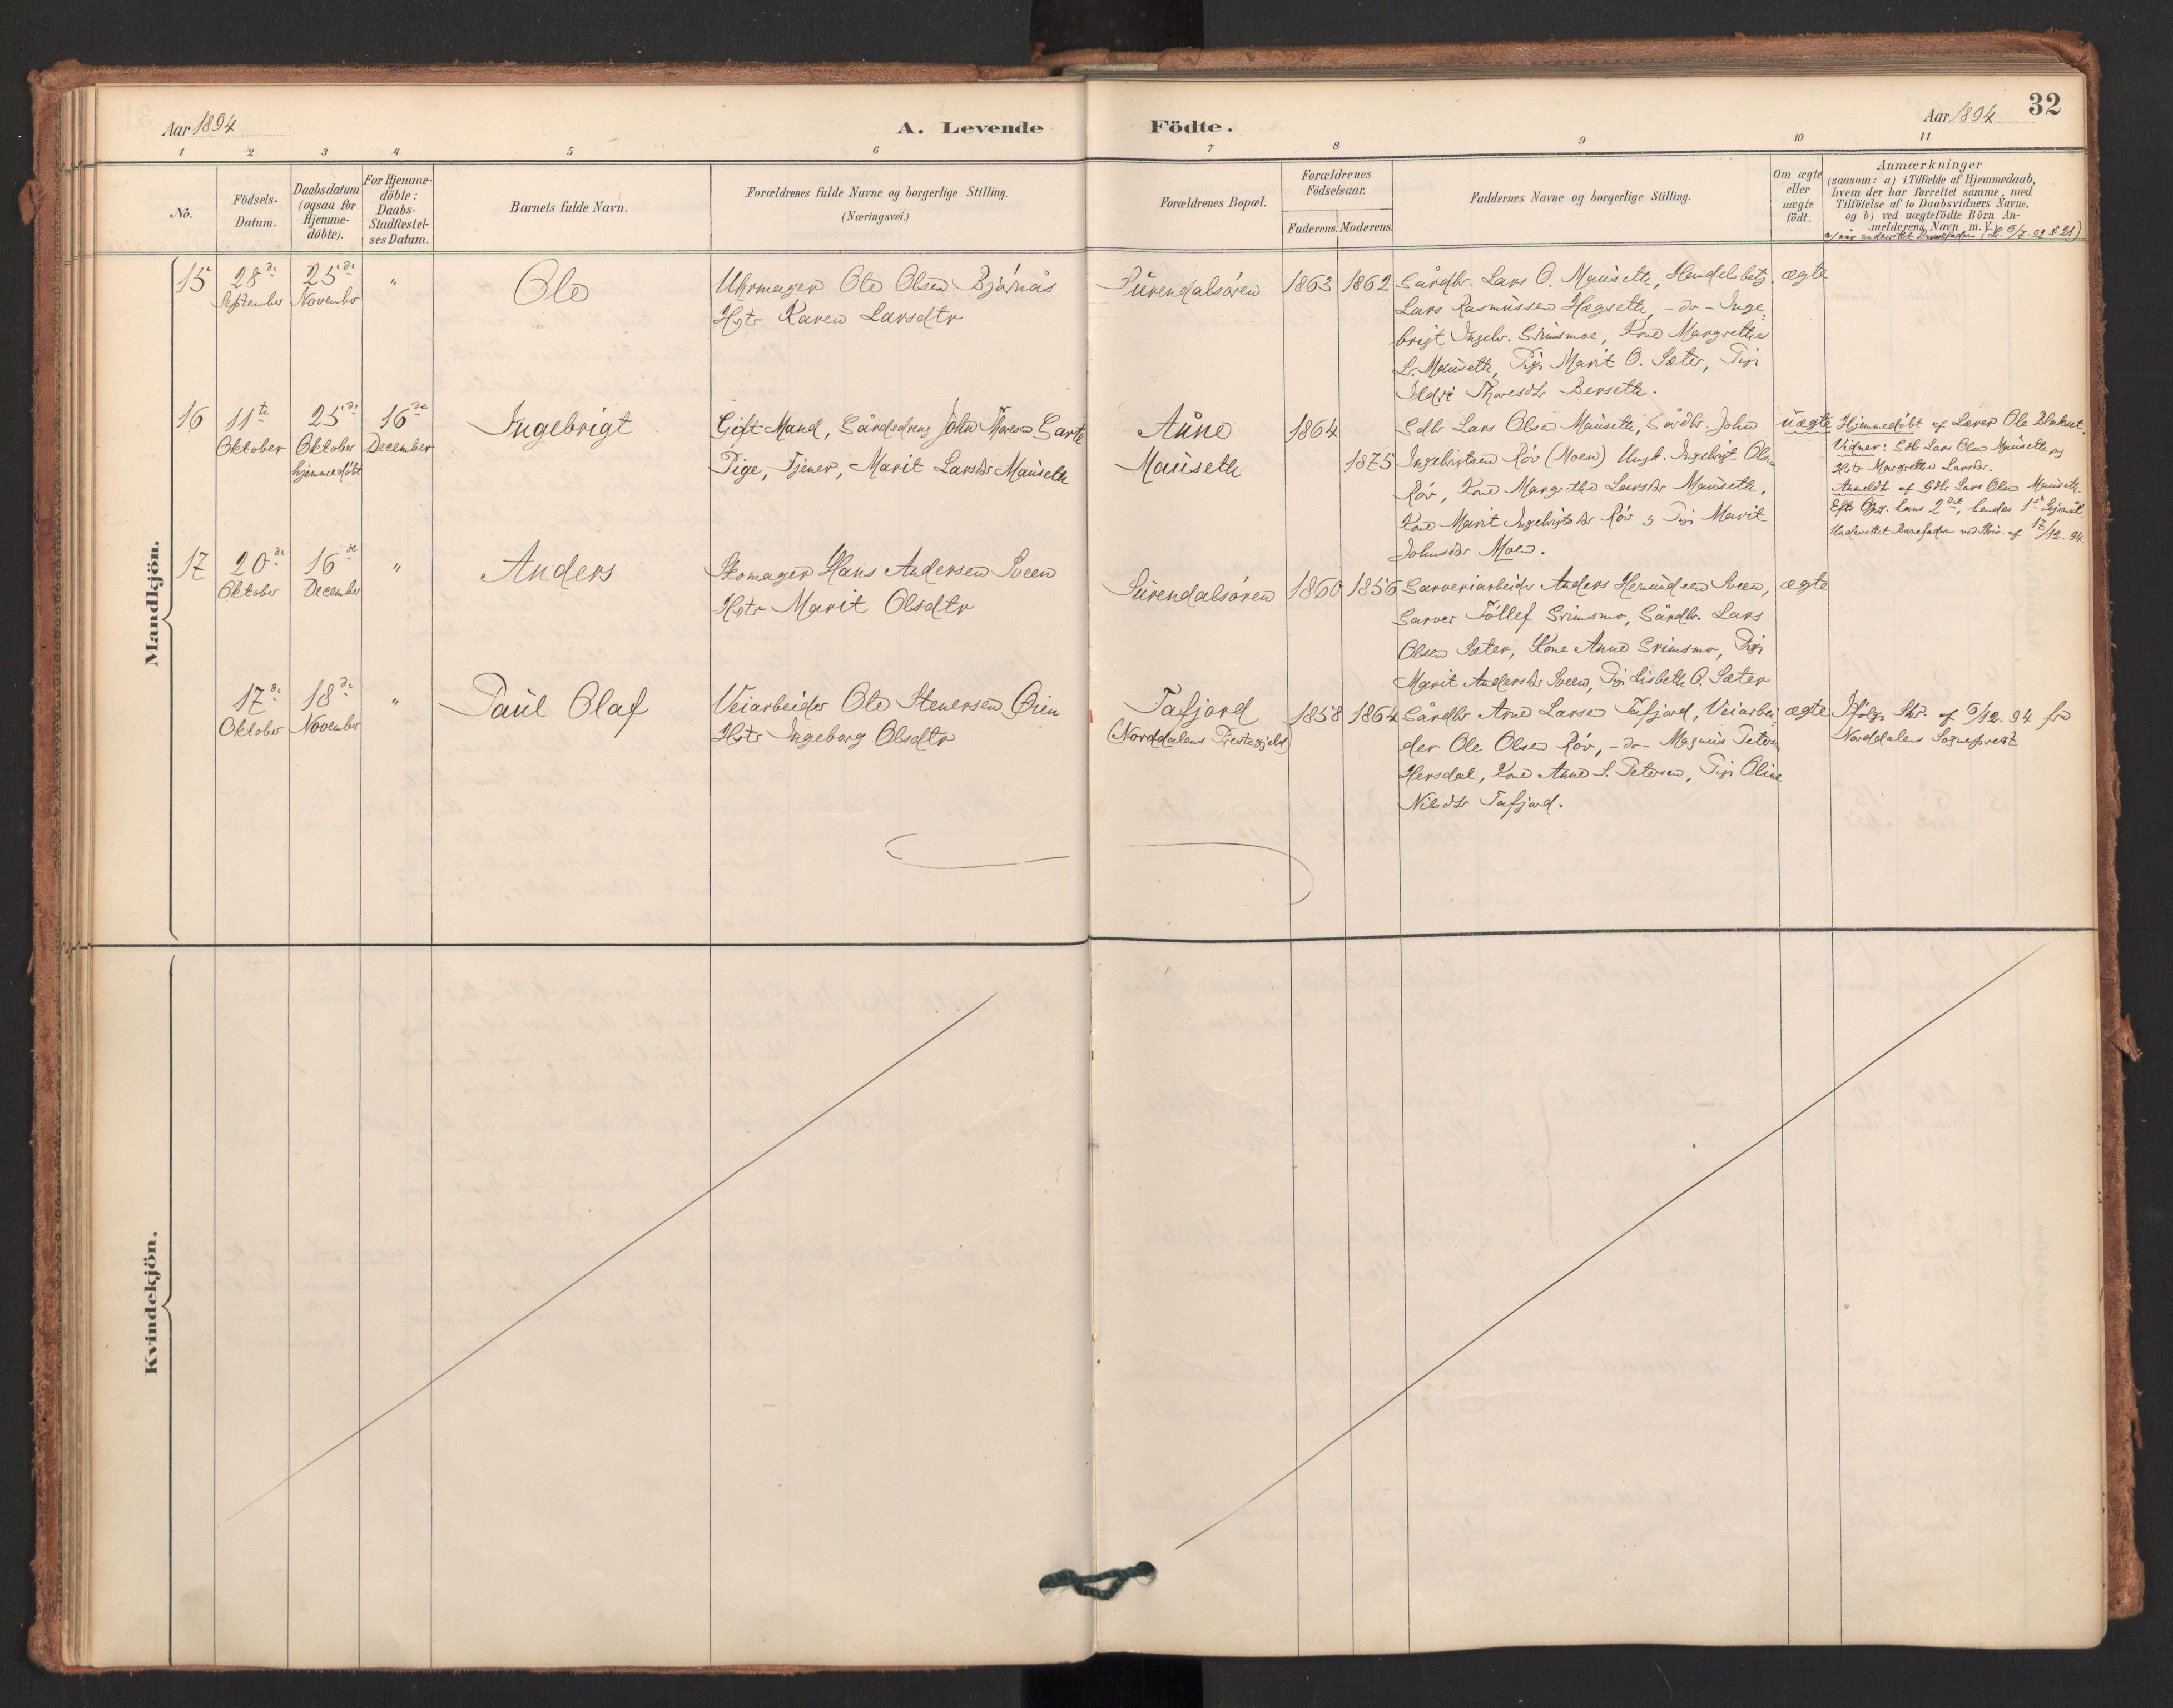 Aar 1894
A. Levende Födte.
Aar 1894
32
1 2 3 4 5 6 7 8 9 10 11
No.
Födsels-
Datum.
Daabsdatum
(ogsaa for
Hjemme-
döbte).
For Hjemme-
döbte:
Daabs-
Stadfæstel-
ses Datum.
Barnets fulde Navn.
Forældrenes fulde Navne og borgerlige Stilling.
(Næringsvei.)
Forældrenes Bopæl.
Forældrenes
Födselsaar.
Faderens. Moderens.
Faddernes Navne og borgerlige Stilling.
Om ægte
eller
uægte
födt.
Anmærkninger
(saasom: a) i Tilfælde af Hjemmedaab,
hvem der har forrettet samme, med
Tilföielse af to Daabsvidners Navne,
og b) ved uægtefödte Börn An-
melderens Navn m. V.)
Mandkjön.
15
28de
September
25de
November
"
Ole
Uhrmager Ole Olsen Bjørnås
Hstr Karen Larsdtr
Surendalsøren
1863
1862
Gårdbr. Lars O. Mauseth, Handelsbetj.
Lars Rasmussen Hægseth, - do - Inge-
brigt Ingebr. Grimsmoe, Kone Margrethe
L. Mauseth, Pige Marit O. Sæter, Pige
Ildri Thoresdtr Berseth.
ægte
16
11te
Oktober
25de
Oktober
hjemmedøbt
16de
December
Ingebrigt
Gift Mand, Gårdsdreng John Thoresen Garte
Pige, Tjener, Marit Larsdtr Mauseth
Aune
Mauseth
1864
1875
Gdbr Lars Olsen Mauseth, Gårdbr. John
Ingebrigtsen Røv (Moen) Ungk. Ingebrigt Olsen
Røv, Kone Margrethe Larsdtr Mauseth,
Kone Marit Ingebrigtsdtr Røv og Pige Marit
Johnsdtr Moen.
uægte
Hjemmedøbt af Lærer Ole
Vidner: Gdbr Lars Olsen Mauseth og
Hstr Margrethe Larsdtr.
Anmeldt af Gdbr Lars Olsen Mauseth.
Efter Opg. hans 2det, hendes 1ste Lejermål.
Underrettet Barnefaderen ved Skriv. af 17/12. 94.
17
20de
Oktober
16de
December
"
Anders
Skomager Hans Andersen Sveen
Hstr Marit Olsdtr
Surendalsøren
1860
1856
Garveriarbeider Anders Hemundsen Sveen,
Garver Tøllef Grimsmo, Gårdbr. Lars
Olsen Sæter, Kone Anne Grimsmo, Pige
Marit Andersdtr Sveen, Pige Lisbeth O. Sæter
ægte
17de
Oktober
18de
November
"
Paul Olaf
Veiarbeider Ole Stenersen Øien
Hstr Ingeborg Olsdtr
Tafjord
(Norddalens Prestegjeld)
1858
1864
Gårdbr Arne Larsen Tafjord, Veiarbei-
der Ole Olsen Røv, - do - Magnus Petersen
Hersdal, Kone Anne S. Petersen, Pige Oline
Nilsdtr Tafjord.
ægte
Ifølge Skr. af 6/12. 94 fra
Norddalens Sogneprest
Kvindekjön.